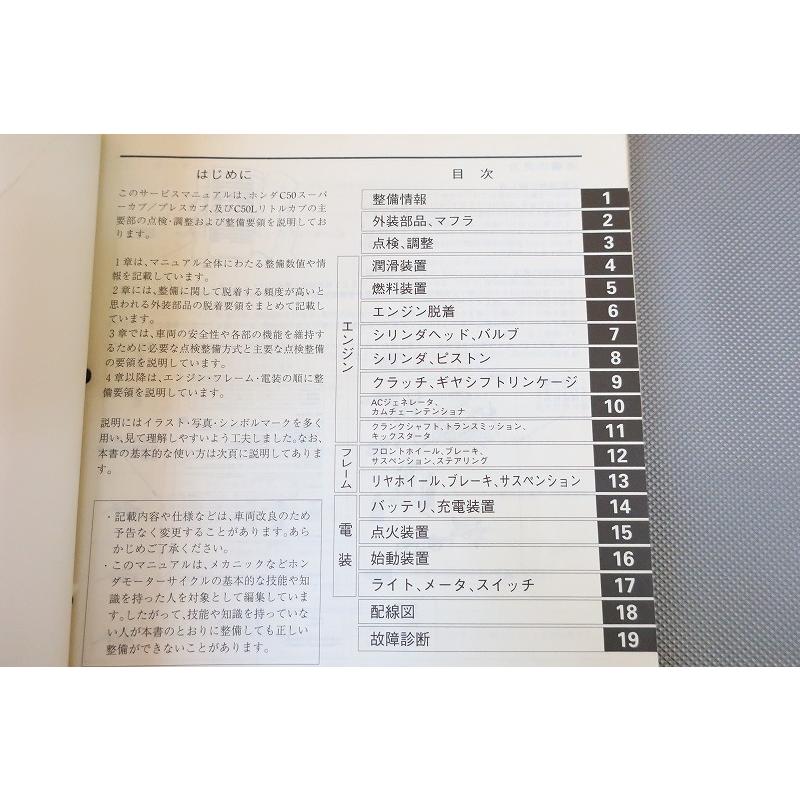 はじめに
このサービスマニュアルは、ホンダC50スーパ
ーカブ/プレスカブ、及びC50Lリトルカブの主
要部の点検・調整および整備要領を説明してお
ります。
1章は、マニュアル全体にわたる整備数値や情
報を記載しています。
2章には、整備に関して脱着する頻度が高いと
思われる外装部品の脱着要領をまとめて記載し
ています。
3章では、車両の安全性や各部の機能を維持す
るために必要な点検整備方式と主要な点検整備
の要領を説明しています。
4章以降は、エンジン・フレーム・電装の順に整
備要領を説明しています。
説明にはイラスト・写真・シンボルマークを多く
用い、見て理解しやすいよう工夫しました。なお、
本書の基本的な使い方は次頁に説明してありま
す。
・記載内容や仕様などは、車両改良のため
予告なく変更することがあります。あら
かじめご了承ください。
・このマニュアルは、メカニックなどホン
ダモーターサイクルの基本的な技能や知
識を持った人を対象として編集していま
す。したがって、技能や知識を持っていな
い人が本書のとおりに整備しても正しい
整備ができないことがあります。
目次
整備情報 1
外装部品、マフラ 2
点検、調整 3
エンジン
潤滑装置 4
燃料装置 5
エンジン脱着 6
シリンダヘッド、バルブ 7
シリンダ、ピストン 8
クラッチ、ギヤシフトリンケージ 9
ACジェネレータ、
カムチェーンテンショナ 10
クランクシャフト、トランスミッション、
キックスタータ 11
フレーム
フロントホイール、ブレーキ、
サスペンション、ステアリング 12
リヤホイール、ブレーキ、サスペンション 13
電装
バッテリ、充電装置 14
点火装置 15
始動装置 16
ライト、メータ、スイッチ 17
配線図 18
故障診断 19